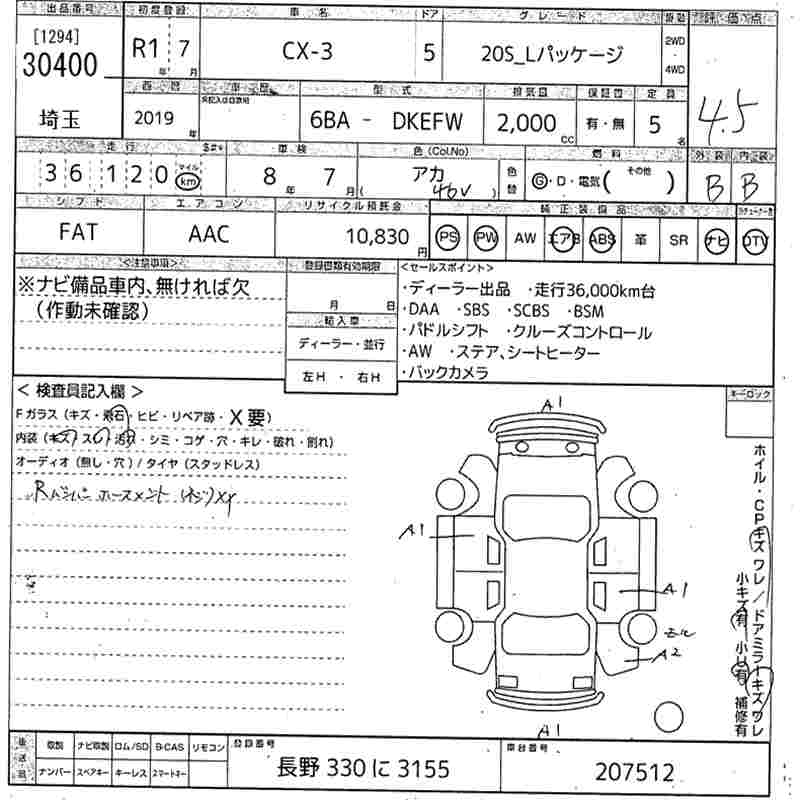 出品番号 初度登録 車名 ドア グレード 評価点
[1294]
30400 R1年 7月 CX-3 5 20S_Lパッケージ 2WD - 4WD 4.5
西暦 車歴 型式 排気量 保証書 定員
埼玉 2019年 6BA - DKEFW 2,000CC 有・無 5名
走行 車検 色(Col.No) 燃料 外装 内装
36120 マイル km 8年 7月 アカ 46V 色替 G・D・電気( その他 ) B B
シフト エアコン リサイクル預託金 純正装備品
FAT AAC 10,830円 PS PW AW エアB ABS 革 SR ナビ DTV
<注意事項> 登録書類有効期限 <セールスポイント>
※ナビ備品車内、無ければ欠 ・ディーラー出品 ・走行36,000km台
(作動未確認) 月 日 ・DAA ・SBS ・SCBS ・BSM
輸入車 ・パドルシフト ・クルーズコントロール
ディーラー・並行 ・AW ・ステア、シートヒーター
左H ・ 右H ・バックカメラ
<検査員記入欄> キーロック
Fガラス(キズ・飛石・ヒビ・リペア跡・X要)
内装(キズ・スレ・汚れ・シミ・コゲ・穴・キレ・破れ・割れ)
オーディオ(無し・穴)/タイヤ(スタッドレス)
A1
A1
A1
A2
A1
ホイル・CPキズ ワレ/ドアミラーキズワレ
小キズ有 小U有 補修有
後送品 取説 ナビ取説 ロム/SD B-CAS リモコン 登録番号 車台番号
ナンバー スペアキー キーレス スマートキー 長野 330 に 3155 207512